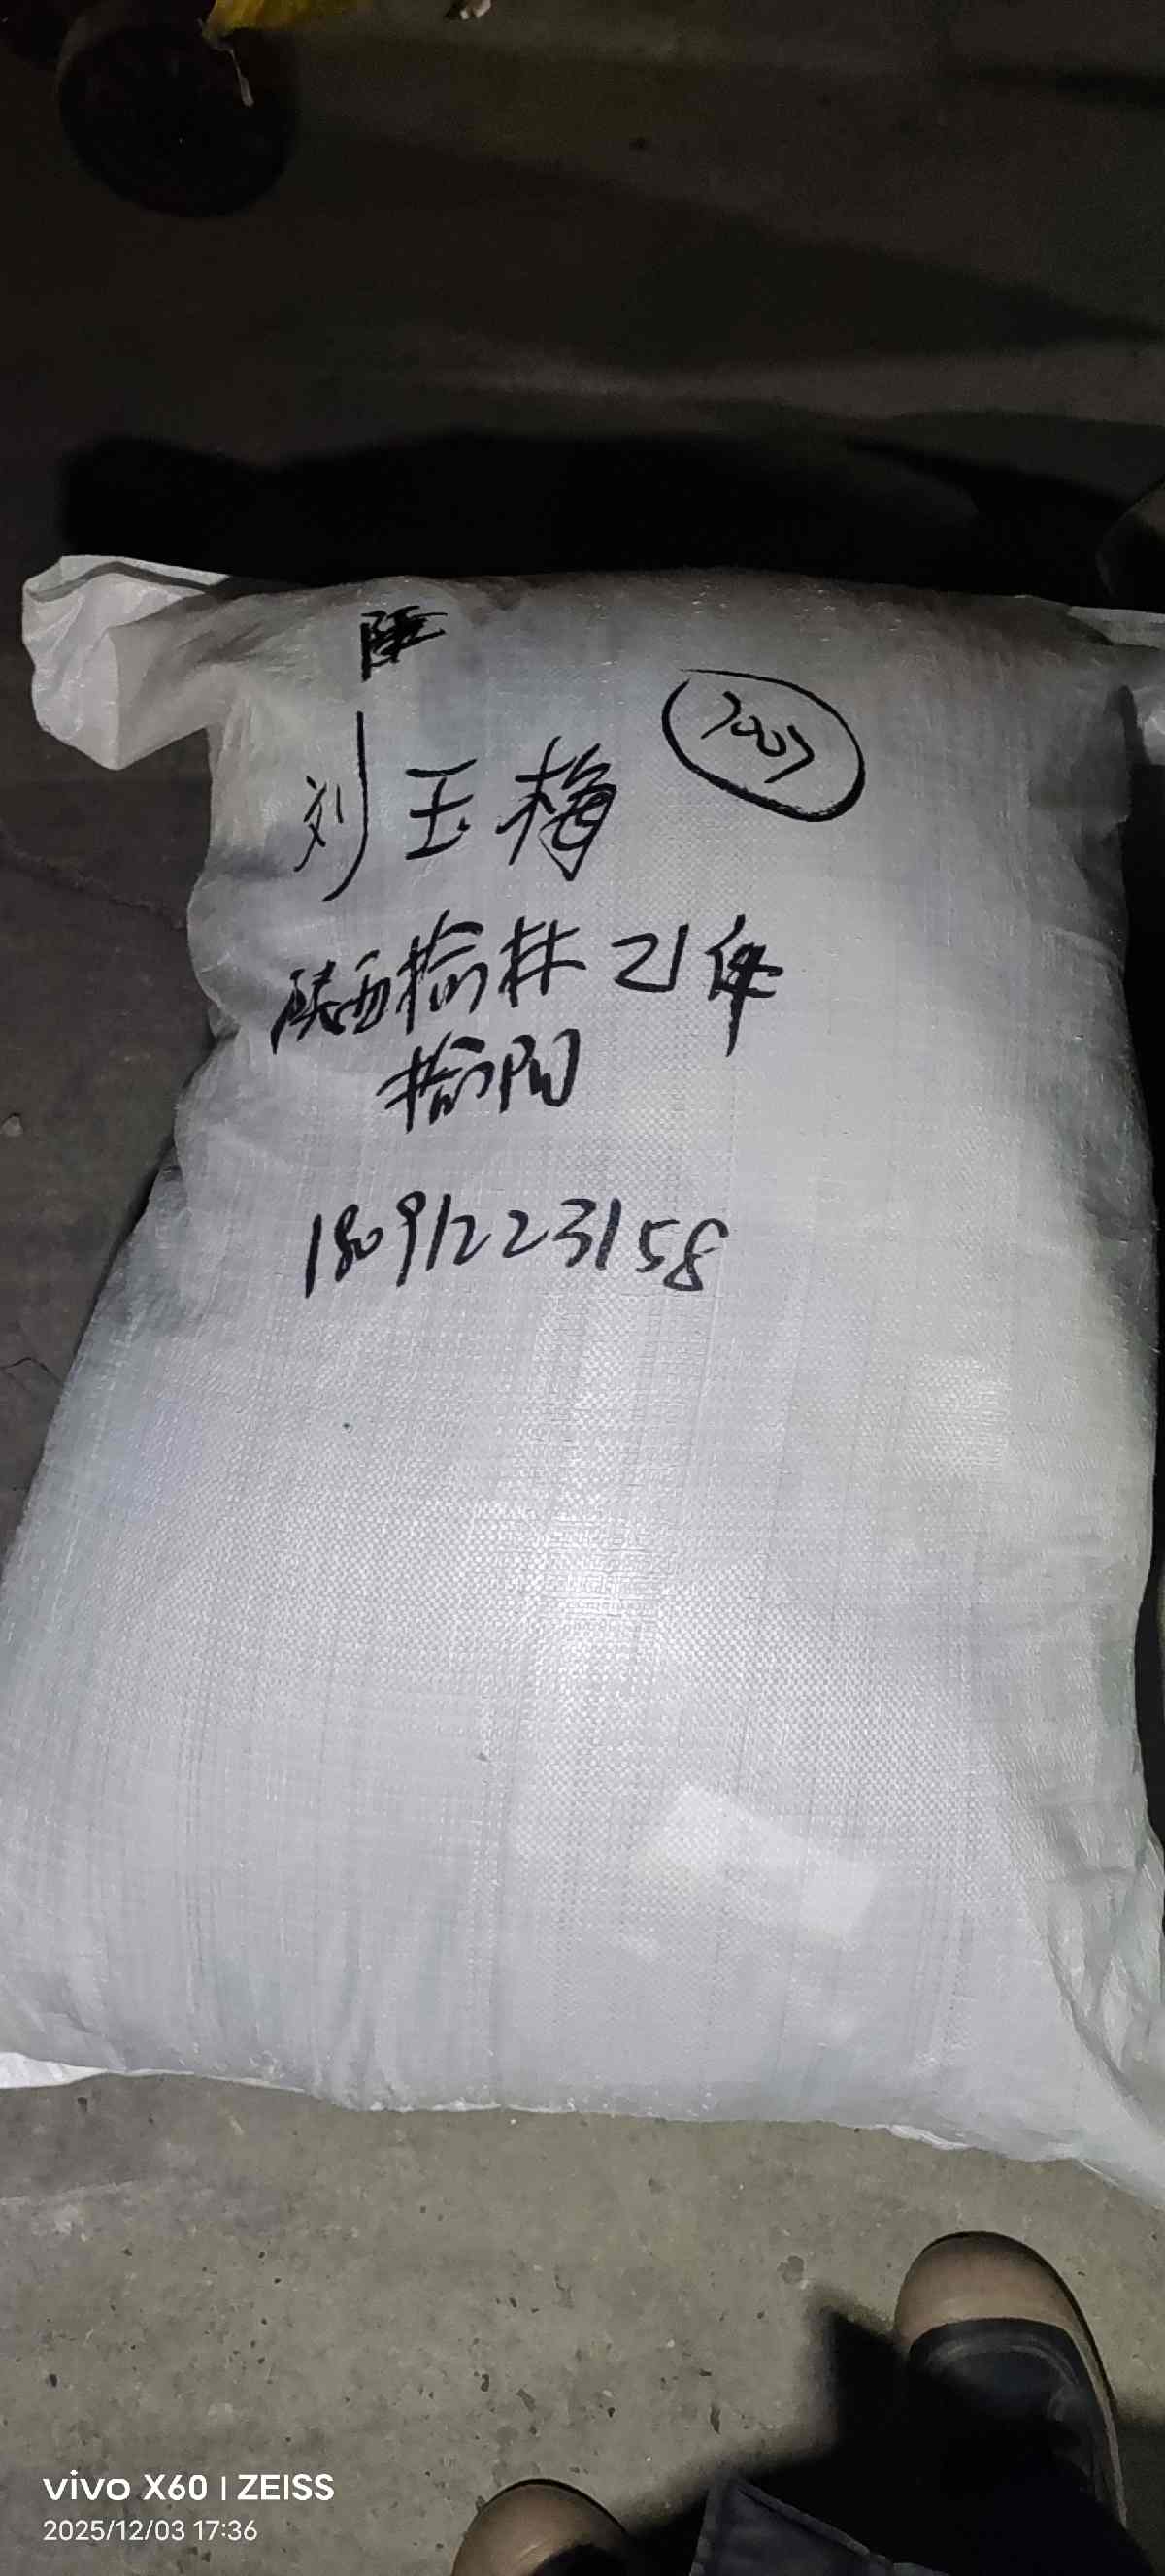 刘玉梅
陕西榆林 21件
榆阳
18091223158
vivo X60 | ZEISS
2025/12/03 17:36